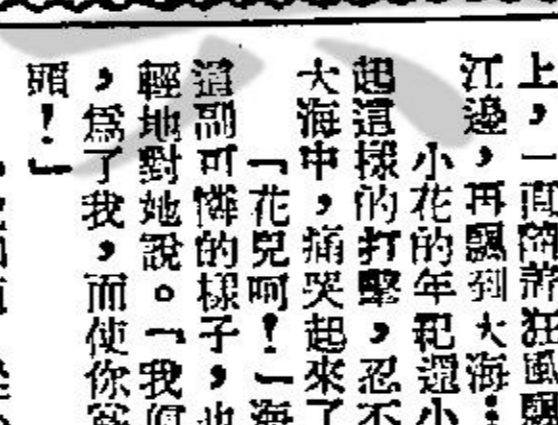 上，一面隨着狂風飄
江邊，再飄到大海：
小花的年紀還小
起這樣的打擊，忍不
大海中，痛哭起來了
「花兒呵！」海
道副可憐的樣子，也
輕地對她說。「我
，爲了我，而使你
頭！」